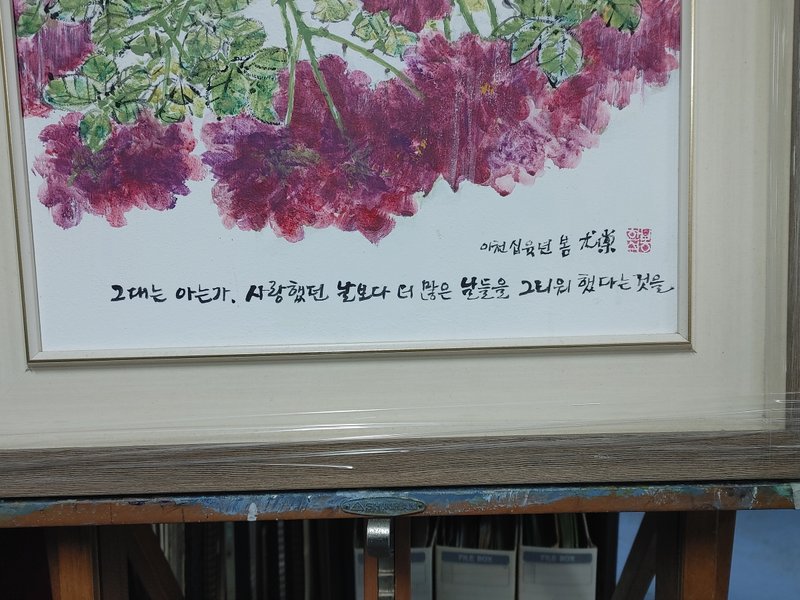 이천십육년 봄
그대는 아는가. 사랑했던 날보다 더 많은 날들을 그리워 했다는것을
FILE BOX
FILE BOX